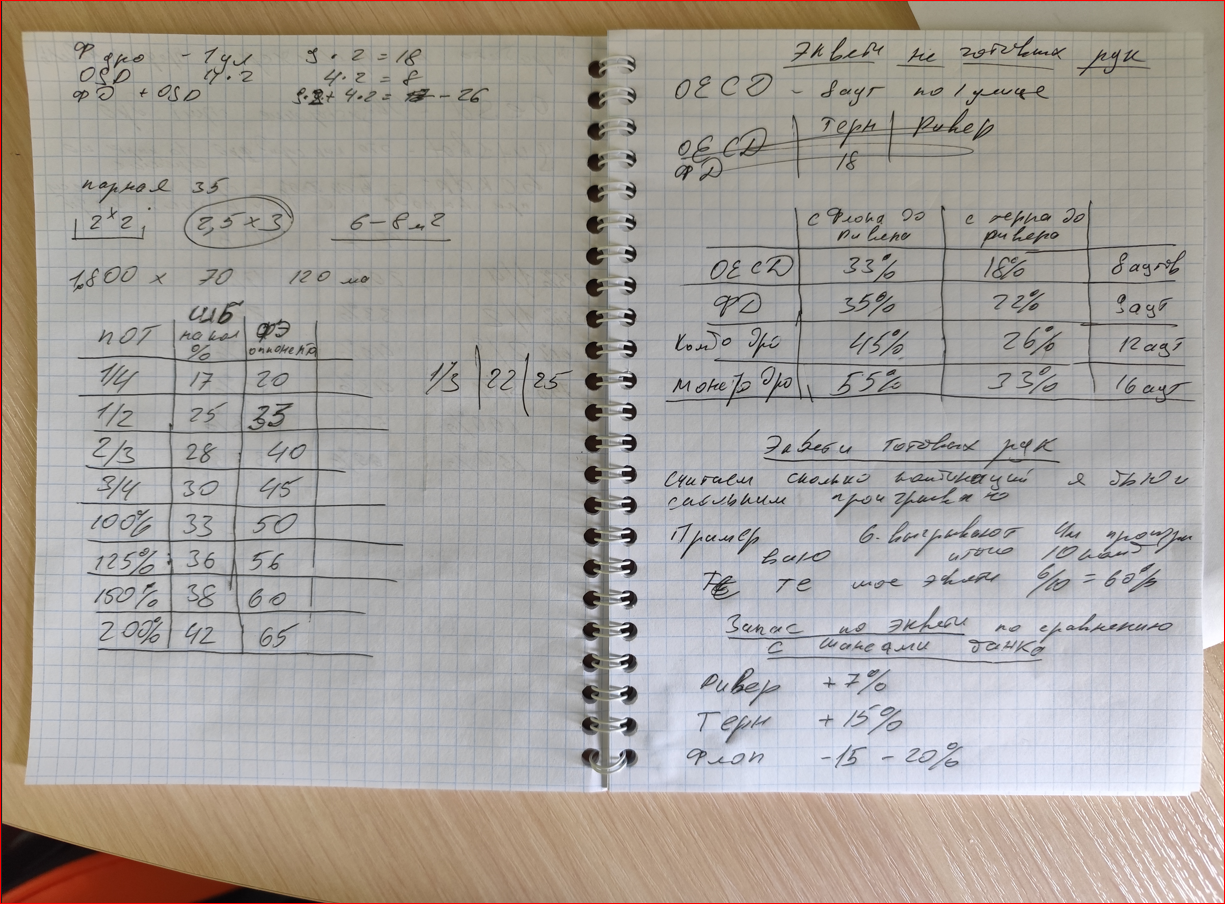 Ф дро - 1 ул 9 · 2 = 18
OSD 4 · 2 4 · 2 = 8
ФD + OSD 9·2 + 4·2 = - 26
парная 35
2 × 2 2,5 × 3 6 - 8 м2
1,800 × 70 120
ПОТ ШБ на кол % ФЭ оппонента
1/4 17 20
1/3 22 25
1/2 25 33
2/3 28 40
3/4 30 45
100% 33 50
125% 36 56
150% 38 60
200% 42 65
Эквети не готовых рук
OECD - 8 аут по 1 улице
Терн Ривер
OECD
ФD 18
с Флопа до ривера с терна до ривера
OECD 33% 18% 8 аутов
ФD 35% 22% 9 аут
Комбо дро 45% 26% 12 аут
Монстр дро 55% 33% 16 аут
Эквети Готовых рук
Считаем сколько комбинаций я бью и
скольким проигрываю
Пример 6 выгрывают 4м проигры
ваю итого 10 комб
Те мое эквети 6/10 = 60%
Запас по эквети по сравнению
с шансами банка
Ривер + 7%
Терн + 15%
Флоп - 15 - 20%